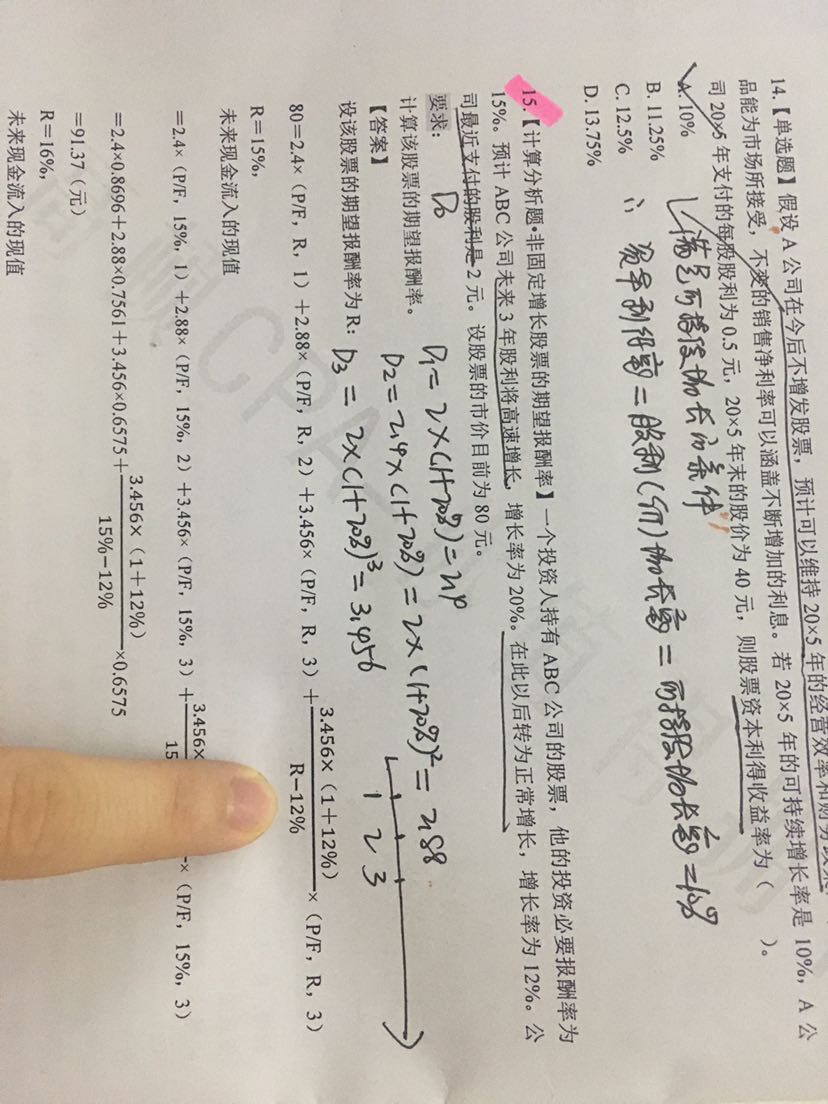 14.【单选题】假设 A 公司在今后不增发股票，预计可以维持 20×5 年的经营效率和财务政策
品能为市场所接受，不变的销售净利率可以涵盖不断增加的利息。若 20×5 年的可持续增长率是 10%，A 公
司 20×5 年支付的每股股利为 0.5 元，20×5 年末的股价为 40 元，则股票资本利得收益率为（　　）。
A. 10%
满足可持续增长的条件
B. 11.25%
∴ 资本利得率=股利(后)增长率=可持续增长率=10%
C. 12.5%
D. 13.75%
15.【计算分析题·非固定增长股票的期望报酬率】一个投资人持有 ABC 公司的股票，他的投资必要报酬率为
15%。预计 ABC 公司未来 3 年股利将高速增长，增长率为 20%。在此以后转为正常增长，增长率为 12%。公
司最近支付的股利是 2 元。设股票的市价目前为 80 元。
要求：
D0
计算该股票的期望报酬率。
D1=2×(1+20%)=2.4
【答案】
D2=2.4×(1+20%)=2×(1+20%)²=2.88
1 2 3
设该股票的期望报酬率为 R：
D3=2×(1+20%)³=3.456
80＝2.4×（P/F，R，1）＋2.88×（P/F，R，2）＋3.456×（P/F，R，3）＋3.456×（1＋12%）/R－12%×（P/F，R，3）
R＝15%，
未来现金流入的现值
＝2.4×（P/F，15%，1）＋2.88×（P/F，15%，2）＋3.456×（P/F，15%，3）＋3.456×/15 ×（P/F，15%，3）
＝2.4×0.8696＋2.88×0.7561＋3.456×0.6575＋3.456×（1＋12%）/15%－12%×0.6575
＝91.37（元）
R＝16%，
未来现金流入的现值